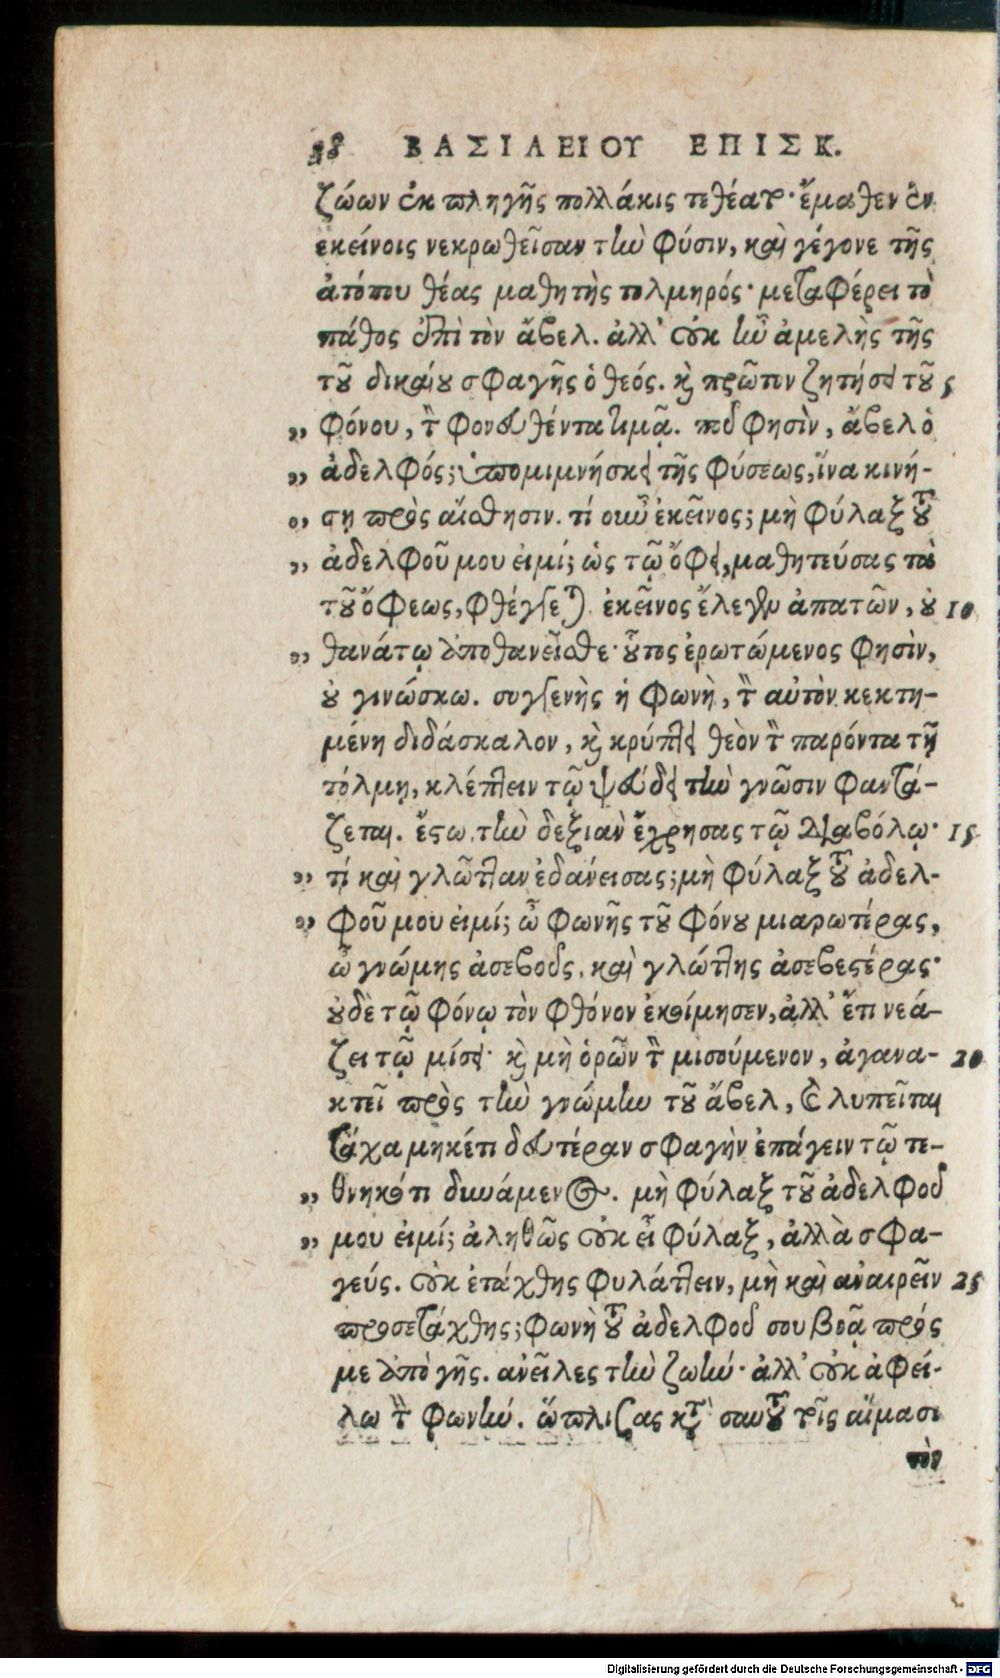 38 ΒΑΣΙΛΕΙΟΥ ΕΠΙΣΚ.
ζώων ἐκ πληγῆς πολλάκις τεθέαται· ἔμαθεν ἐν
εκείνοις νεκρωθεῖσαν τὴν φύσιν, καὶ γέγονε τῆς
ἀτόπου θέας μαθητὴς τολμηρός· μεταφέρει τὸ
πάθος ἐπὶ τὸν ἄβελ. ἀλλ' οὐκ ἦν ἀμελὴς τῆς
τοῦ δικαίου σφαγῆς ὁ θεός. καὶ πρῶτον ζητήσει τοῦ 5
„ φόνου, τὸν φονευθέντα τιμᾷ. ποῦ φησὶν, ἄβελ ὁ
„ ἀδελφός; ὑπομιμνήσκει τῆς φύσεως, ἵνα κινή-
„ σῃ πρὸς αἴσθησιν. τί οὖν ἐκεῖνος; μὴ φύλαξ τοῦ
„ ἀδελφοῦ μου εἰμί; ὡς τῷ ὄφει, μαθητεύσας τὰ
τοῦ ὄφεως, φθέγγεται. ἐκεῖνος ἔλεγεν ἀπατῶν, οὐ 10
„ θανάτῳ ἀποθανεῖσθε· οὗτος ἐρωτώμενος φησὶν,
οὐ γινώσκω. συγγενὴς ἡ φωνὴ, τὸν αὐτὸν κεκτη-
μένη διδάσκαλον, καὶ κρύπτει θεὸν τὸν παρόντα τῇ
τόλμῃ, κλέπτειν τῷ ψεύδει τὴν γνῶσιν φαντά-
ζεται. ἔστω, τὴν δεξιὰν ἔχρησας τῷ διαβόλῳ· 15
„ τί καὶ γλῶτταν ἐδάνεισας; μὴ φύλαξ τοῦ ἀδελ-
„ φοῦ μου εἰμί; ὦ φωνῆς τοῦ φόνου μιαρωτέρας,
ὦ γνώμης ἀσεβοῦς, καὶ γλώττης ἀσεβεστέρας·
οὐδὲ τῷ φόνῳ τὸν φθόνον ἐκοίμησεν, ἀλλ' ἔτι νεά-
ζει τῷ μίσει· καὶ μὴ ὁρῶν τὸν μισούμενον, ἀγανα- 20
κτεῖ πρὸς τὴν γνώμην τοῦ ἄβελ, καὶ λυπεῖται
τάχα μηκέτι δευτέραν σφαγὴν ἐπάγειν τῷ τε-
„ θνηκότι δυνάμενος. μὴ φύλαξ τοῦ ἀδελφοῦ
„ μου εἰμί; ἀληθῶς οὐκ εἶ φύλαξ, ἀλλὰ σφα-
γεύς. οὐκ ἐτάχθης φυλάττειν, μὴ καὶ ἀναιρεῖν 25
προσετάχθης; φωνὴ τοῦ ἀδελφοῦ σου βοᾷ πρός
με ἀπὸ γῆς. ἀνεῖλες τὴν ζωήν· ἀλλ' οὐκ ἀφεί-
λω τὴν φωνήν. ὥπλισας κατὰ σαυτοῦ τοῖς αἵμασι
τὸν
Digitalisierung gefördert durch die Deutsche Forschungsgemeinschaft - DFG